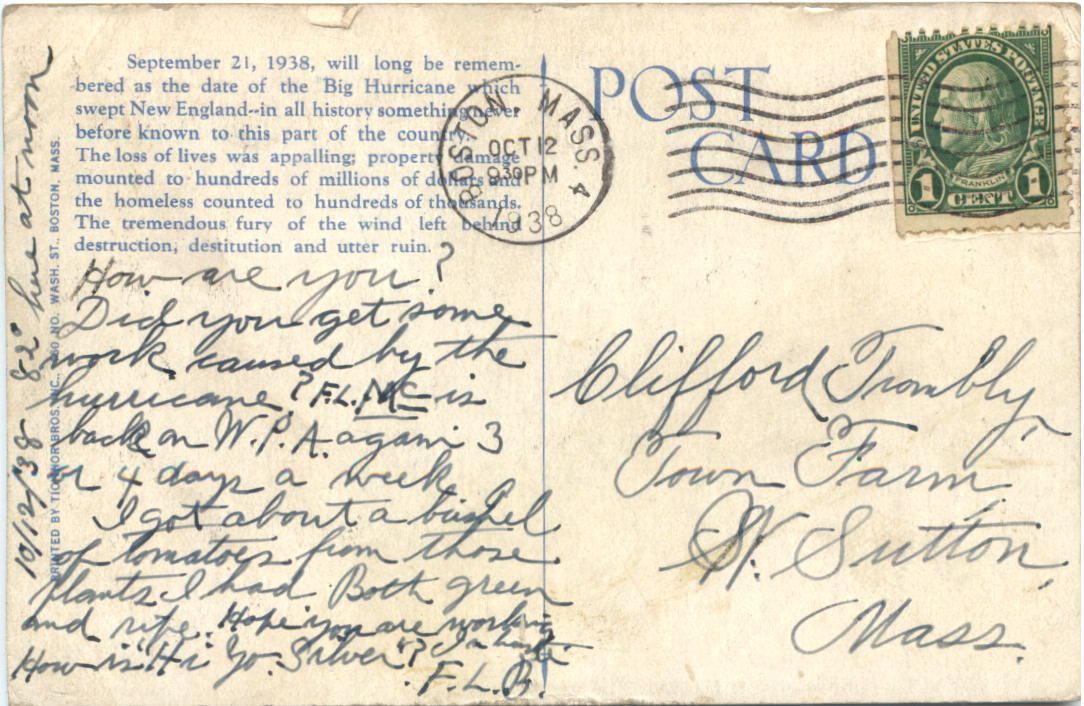 September 21, 1938, will long be remem-
bered as the date of the Big Hurricane which
swept New England--in all history something never
before known to this part of the country.
The loss of lives was appalling; property damage
mounted to hundreds of millions of dollars and
the homeless counted to hundreds of thousands.
The tremendous fury of the wind left behind
destruction, destitution and utter ruin.
How are you?
Did you get some
work caused by the
hurricane? F.L. is
back on W.P.A. again 3
or 4 days a week.
I got about a bushel
of tomatoes from those
plants I had Both green
and ripe. Hope you are working
How is "Hi Yo. Silver"? In haste
F.L.B.
10/12/38 82° here at noon
PRINTED BY TICHNOR BROS. INC., NO. WASH. ST., BOSTON, MASS.
POST
CARD
BOSTON, MASS. 4
OCT 12
930 PM
1938
UNITED STATES POSTAGE
FRANKLIN
1 CENT 1
Clifford Trombly,
Town Farm,
W. Sutton,
Mass.